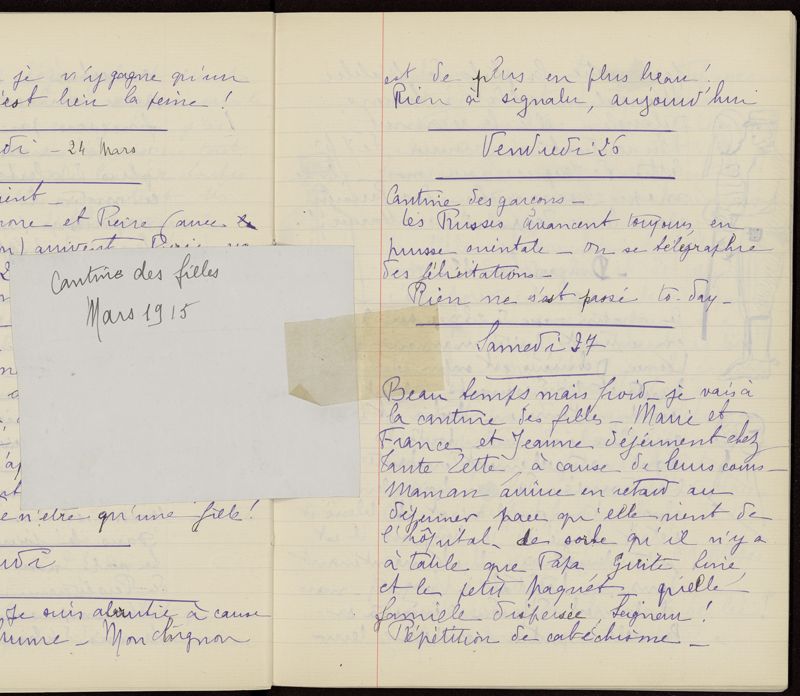 je n'y gagne qu'un
'est bien la peine !
di - 24 Mars
ient -
rone - et Pierre (avec
on) arrivent
Cantine des filles
Mars 1915
e n'être qu'une fille !
udi
Je suis alentie à cause
hume - Mon chignon
est de plus en plus beau !
Rien à signaler, aujourd'hui
Vendredi 26
Cantine des garçons -
les Russes avancent toujours, en
prusse orientale - on se télégraphie
des félicitations -
Rien ne s'est passé to-day -
Samedi 27
Beau temps mais froid - je vais à
la cantine des filles - Marie et
France, et Jeanne déjeunent chez
tante Zette, à cause de leurs cours -
Maman arrive en retard au
déjeuner parce qu'elle vient de
l'hôpital, de sorte qu'il n'y a
à table que Papa Guite
et le petit paquet, quelle
famille dispersée, Seigneur !
Répétition de catéchisme -